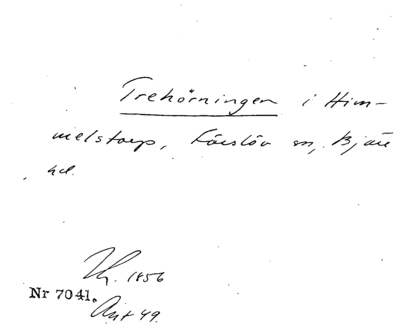 Trehörningen i Him-
melstorp, Förslöv sn, Bjäre
hd.
Th. 1856
Nr 7041.
Ant 49.